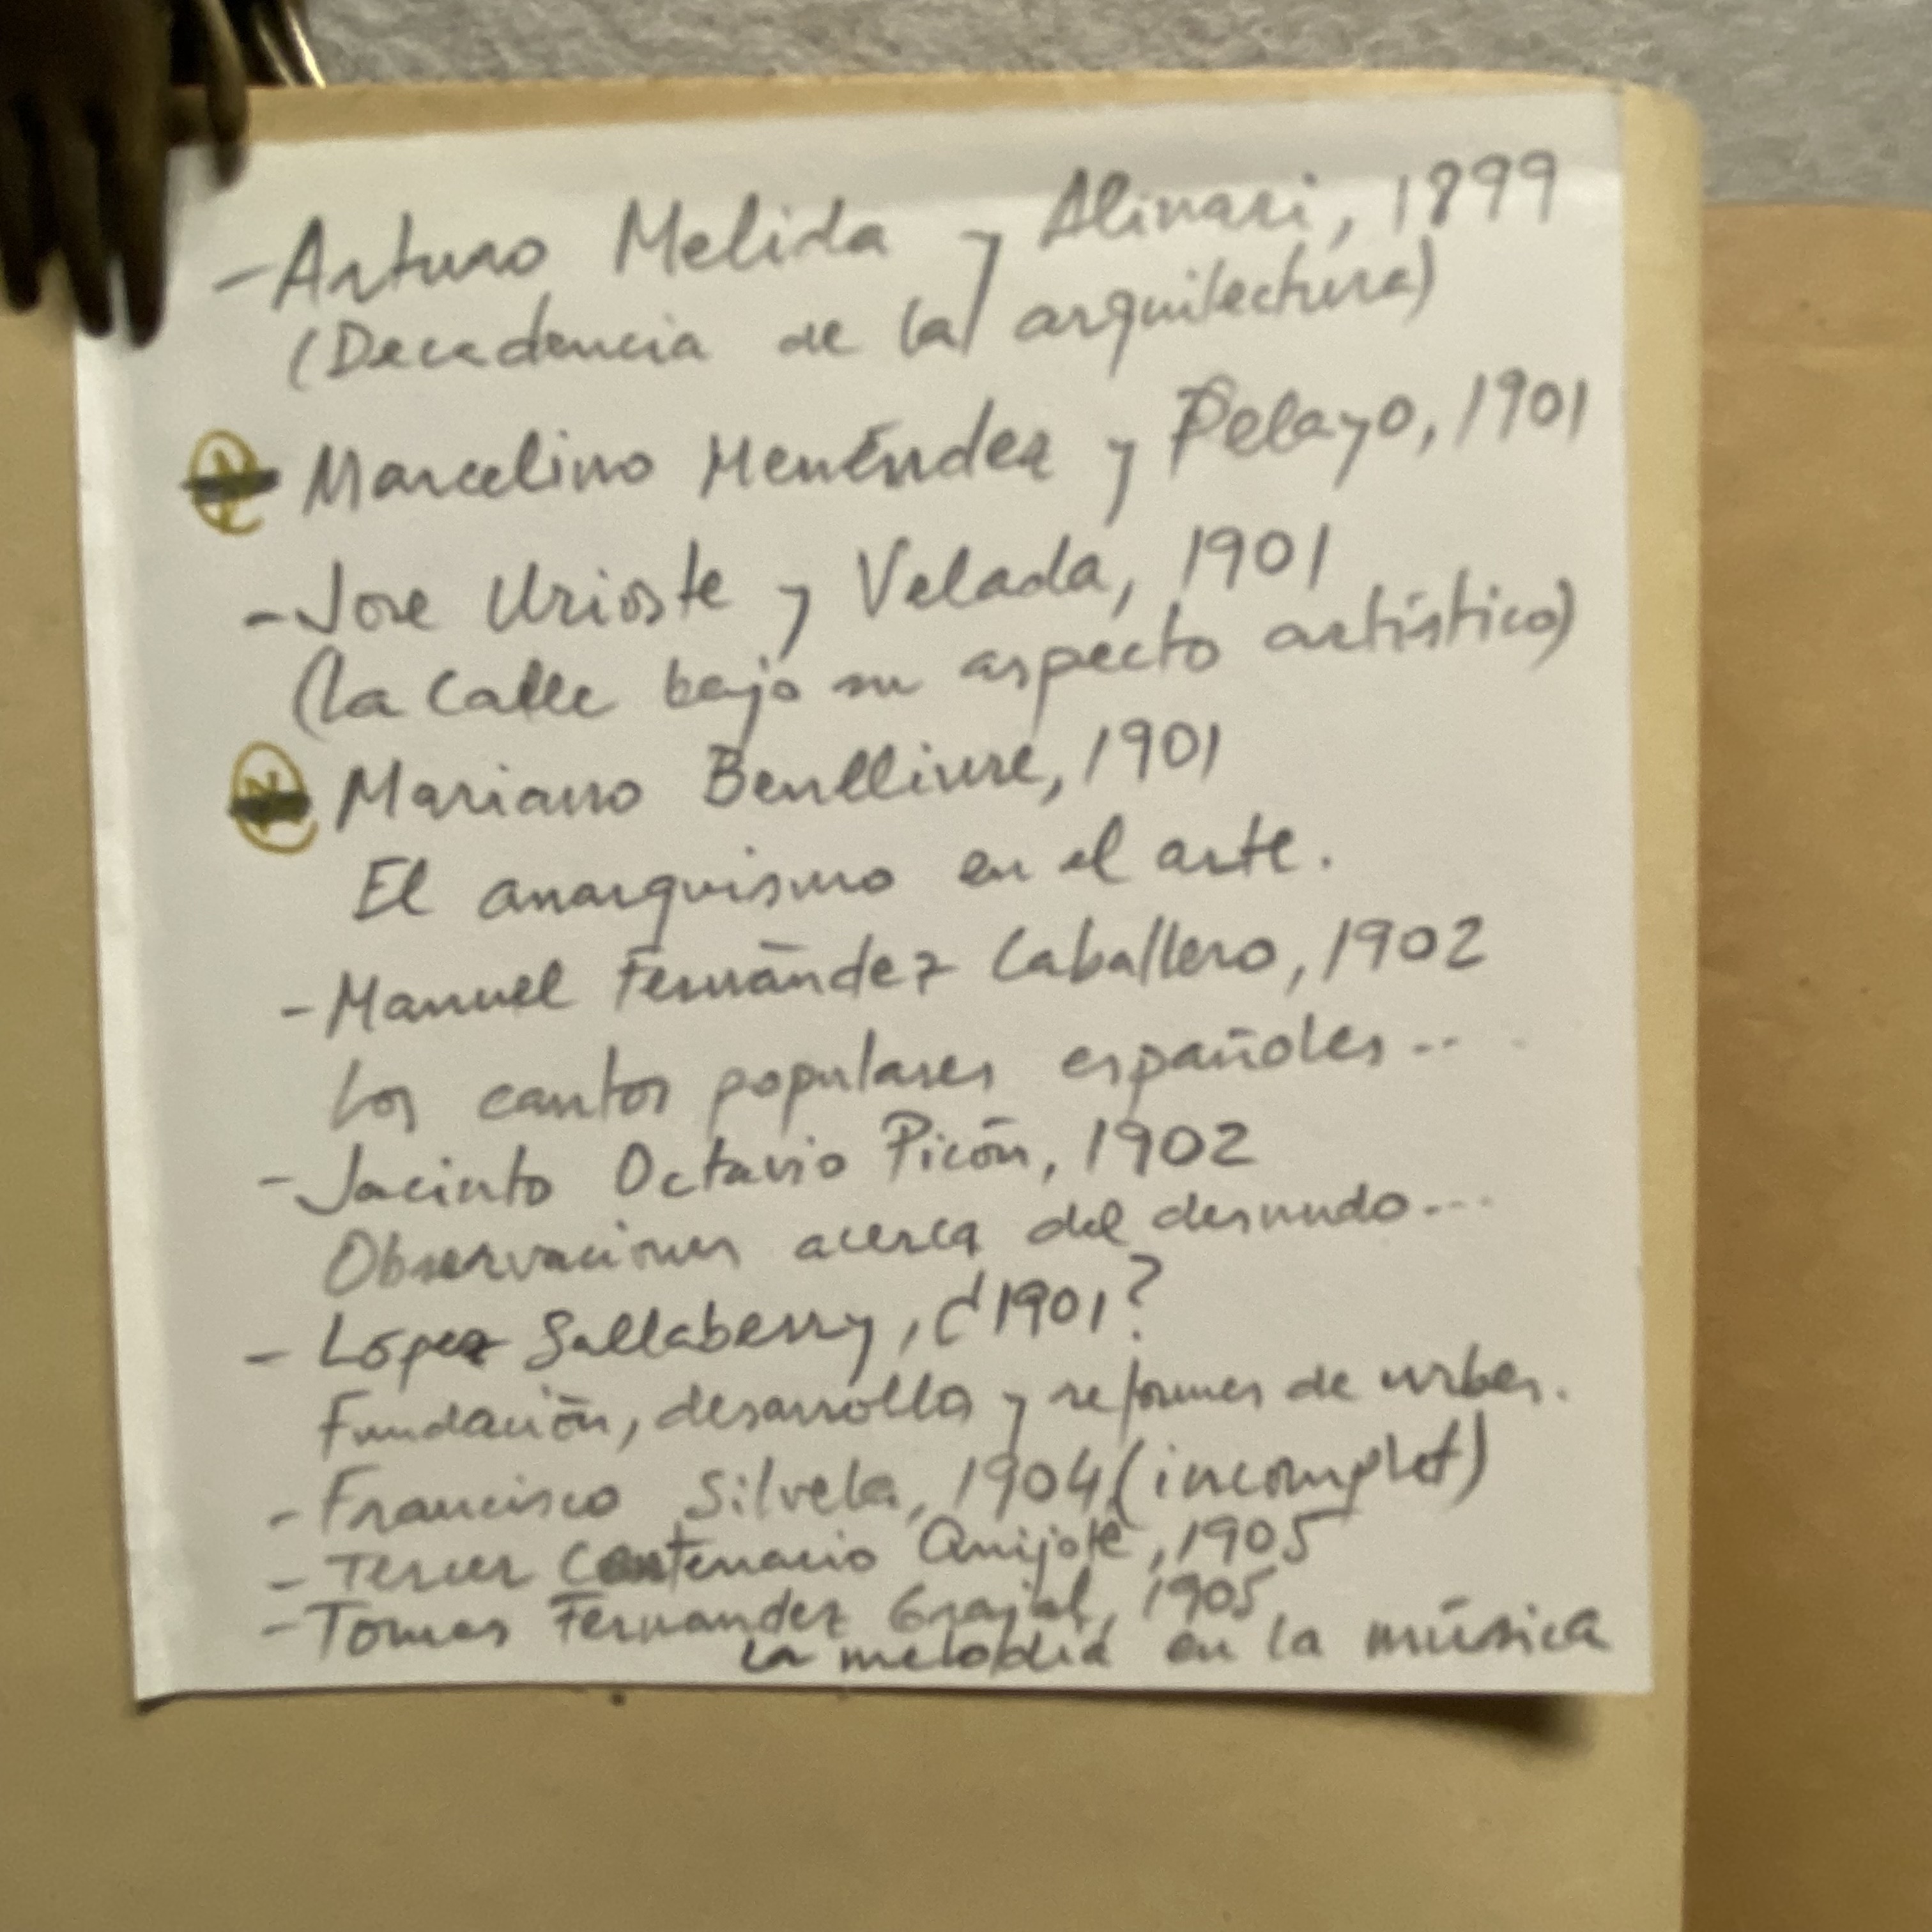 - Arturo Melida y Alinari, 1899
(Decadencia de la arquitectura)
Marcelino Menéndez y Pelayo, 1901
- Jose Urioste y Velada, 1901
(La Calle bajo su aspecto artístico)
Mariano Benlliure, 1901
El anarquismo en el arte.
- Manuel Fernández Caballero, 1902
Los cantos populares españoles...
- Jacinto Octavio Picón, 1902
Observaciones acerca del desnudo...
- López Sallaberry, ¿1901?
Fundación, desarrollo y reformes de urbes.
- Francisco Silvela, 1904 (incomplet)
- Tercer Centenario Quijote, 1905
- Tomas Fernandez Grajal, 1905
La melodia en la música